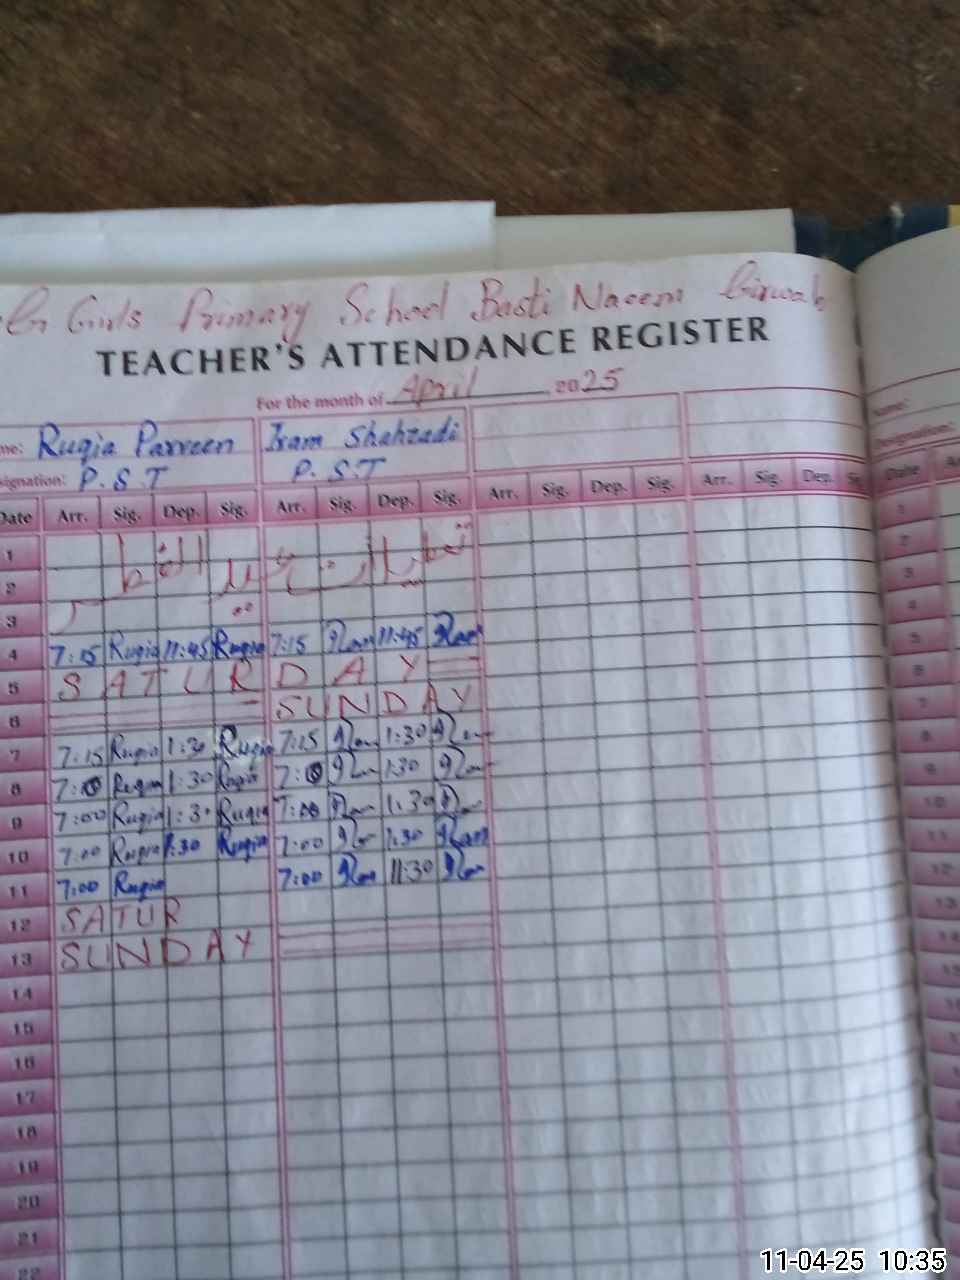 Girls Primary School Basti Naeem
TEACHER'S ATTENDANCE REGISTER
For the month of April, 2025
me: Ruqia Parveen Iram Shahzadi
signation: P.S.T P.S.T
Date Arr. Sig. Dep. Sig. Arr. Sig. Dep. Sig. Arr. Sig. Dep. Sig. Arr. Sig. Dep.
1
2
3
4 7:15 Ruqia 11:45 Ruqia 7:15 Iram 11:45 Iram
5 SATURDAY
6 SUNDAY
7 7:15 Ruqia 1:30 Ruqia 7:15 Iram 1:30 Iram
8 Ruqia 1:30 Ruqia Iram 1:30 Iram
9 7:00 Ruqia 1:30 Ruqia 7:00 Iram 1:30 Iram
10 7:00 Ruqia 1:30 Ruqia 7:00 Iram 1:30 Iram
11 7:00 Ruqia 7:00 Iram 11:30 Iram
12 SATUR
13 SUNDAY
14
15
16
17
18
19
20
21
22
Name:
Designation:
Date
11-04-25 10:35